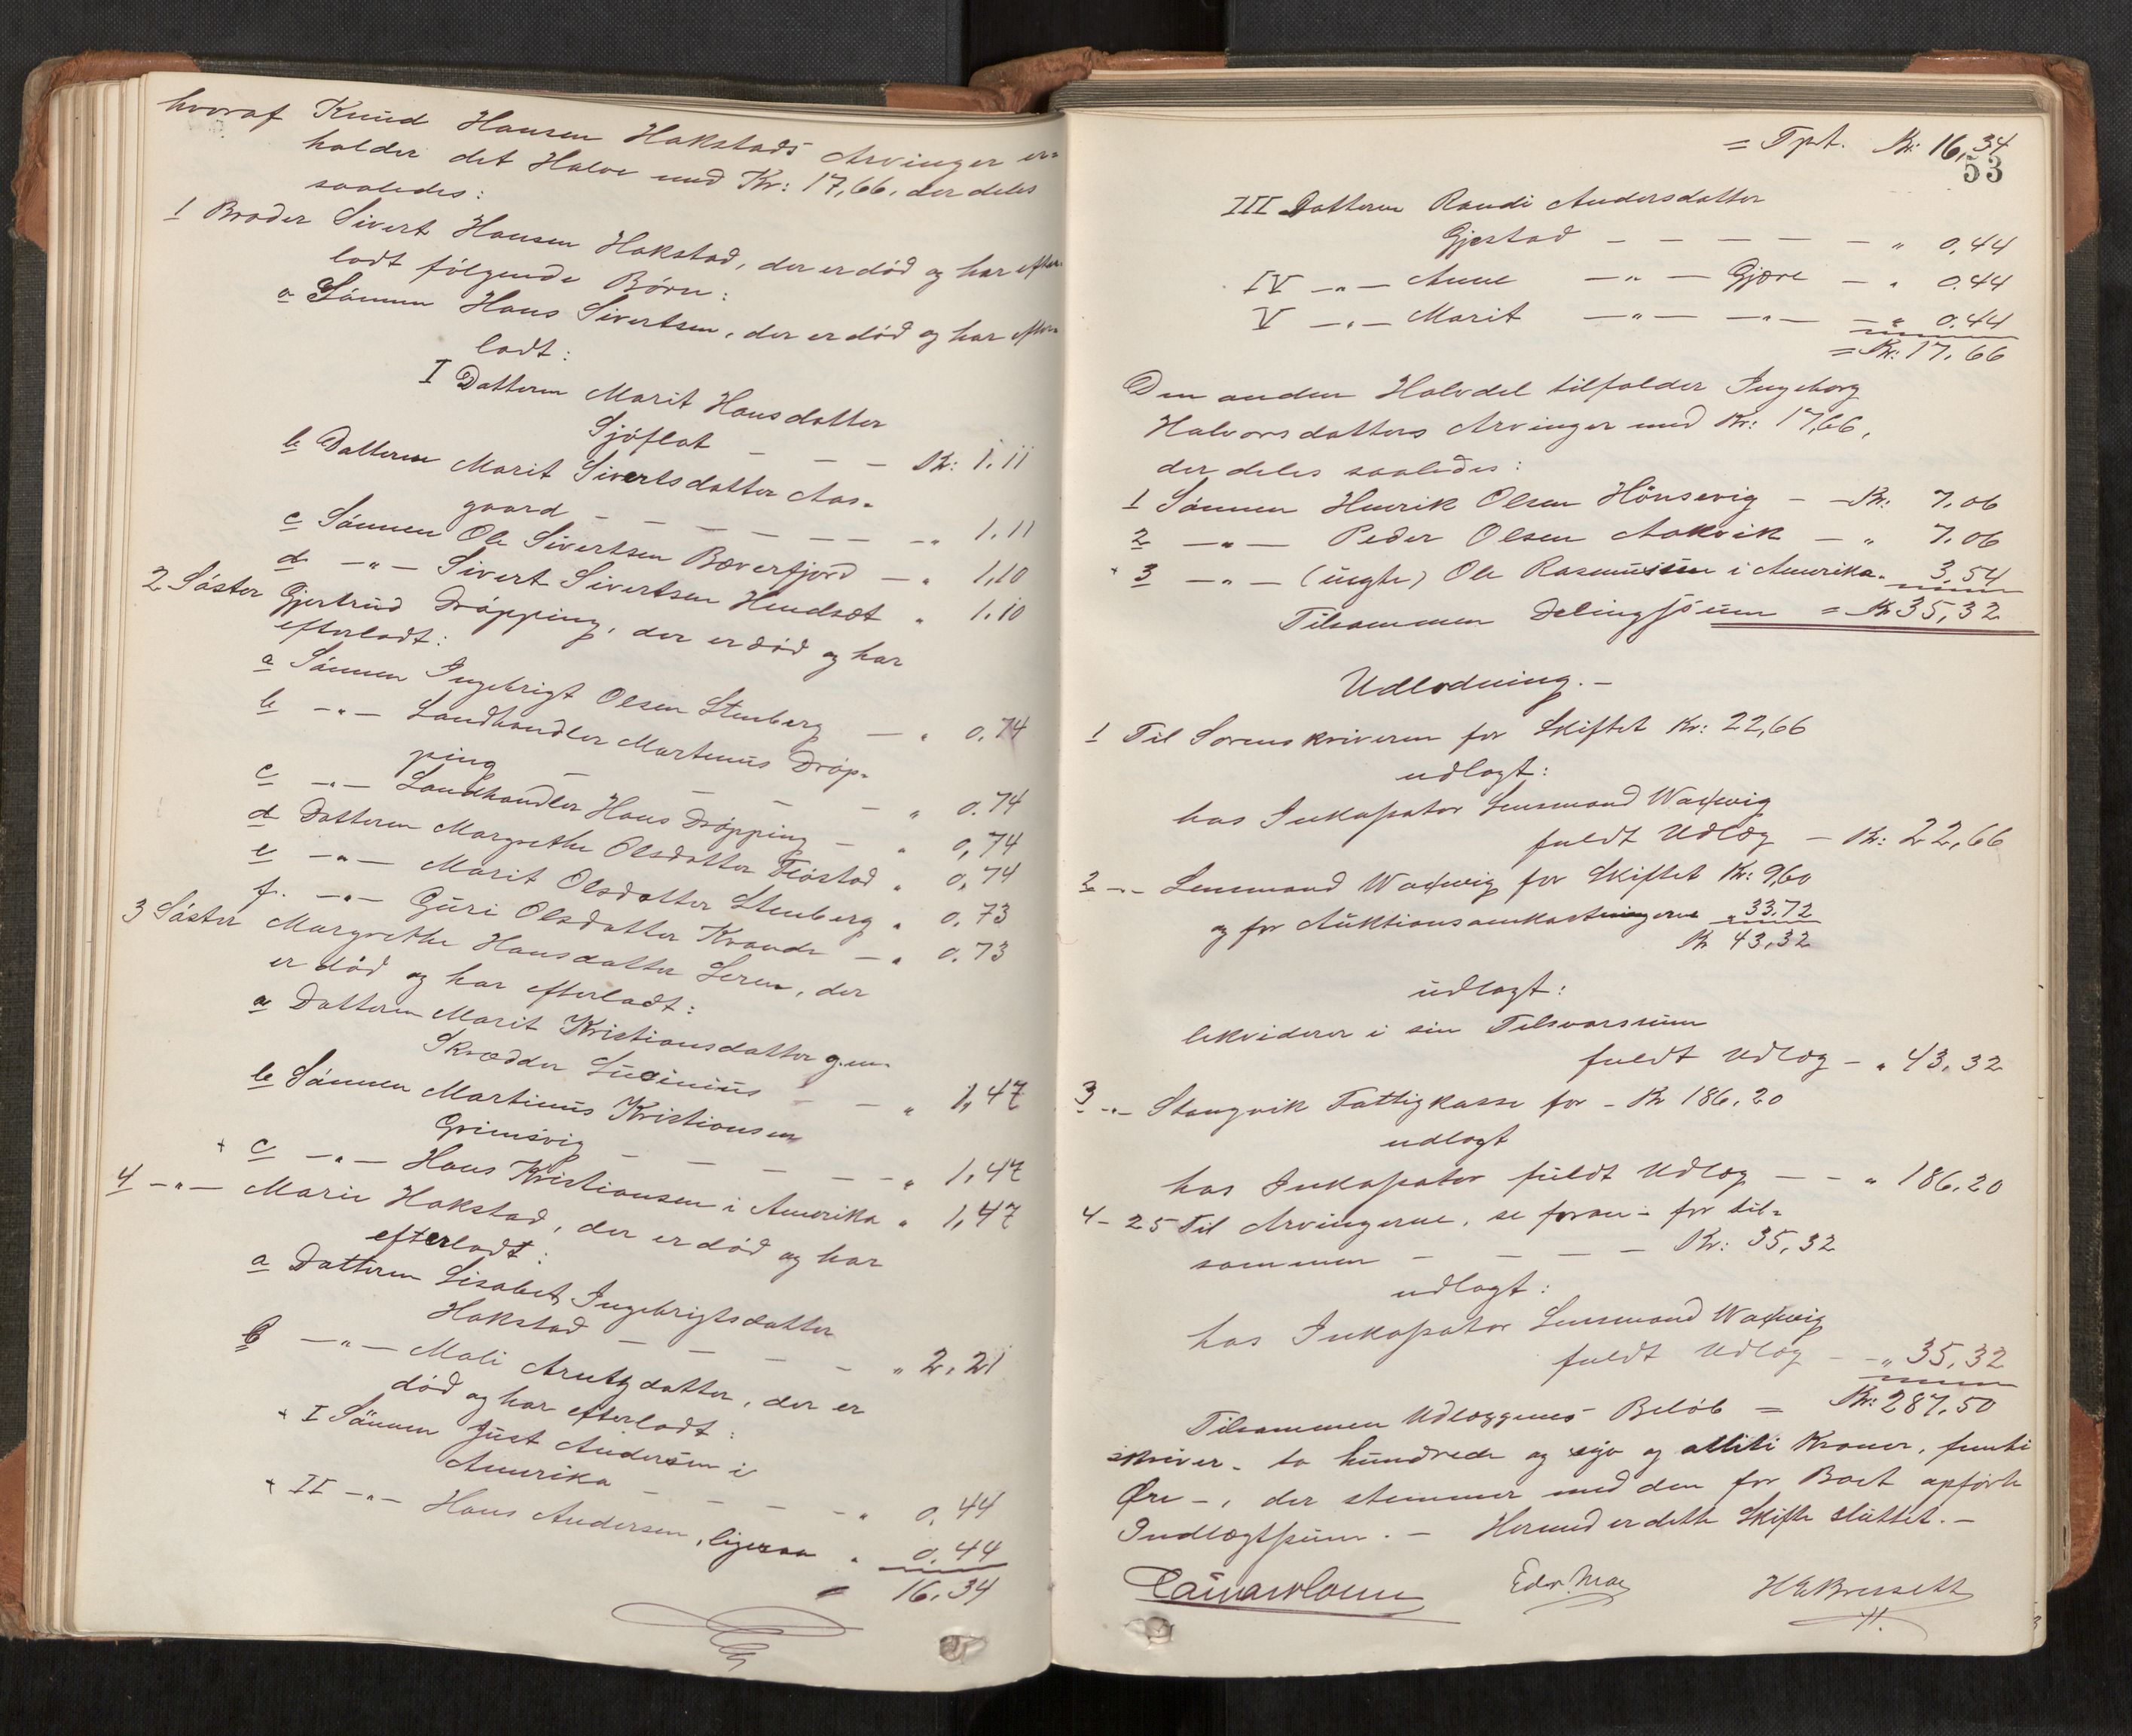 hvoraf Knud Hansen Hakstads Arvinger er=
holder det Halve med Kr: 17,66, der deles
saaledes:
1 Broder Sivert Hansen Hakstad, der er död og har efter=
ladt følgende Börn:
a Sönnen Hans Sivertsen, der er död og har efter=
ladt:
I Datteren Marit Hansdatter
Sjöflat - - - Kr: 1.11
b Datteren Marit Sivertsdatter Aas=
gaard - - - - - - " 1.11
c Sönnen Ole Sivertsen Bæverfjord - " 1,10
d -"- Sivert Sivertsen Hendset " 1.10
2 Söster Gjertrud Dröpping, der er död og har
efterladt:
a Sönnen Ingebrigt Olsen Stenberg - " 0.74
b -"- Landhandler Martinus Dröp=
ping - - - - " 0.74
c -"- Landhandler Hans Dröpping - " 0,74
d Datteren Margrethe Olsdatter Flöstad " 0,74
e -"- Marit Olsdatter Stenberg " 0.73
f. -"- Guri Olsdatter Kvande - " 0.73
3 Söster Margrethe Hansdatter Leren, der
er död og har efterladt:
a Datteren Marit Kristiansdatter g.m.
Skrædder - - " 1,47
b Sönnen Martinus Kristiansen
Grimsvig - - - - - " 1,47
+ c -"- Hans Kristiansen i Amerika " 1,47
4 -"- Marie Hakstad, der er död og har
efterladt:
a Datteren Lisabet Ingebrigtsdatter
Hakstad - - - - " 2.21
b -"- Mali Arntzdatter, der er
död og har efterladt:
+ I Sönnen Just Andersen i
Amerika - - - - " 0.44
+ II -"- Hans Andersen, ligesaa " 0.44
= 16.34
= Tpt. Kr: 16,34
53
III Datteren Randi Andersdatter
Gjestad - - - - - " 0.44
IV -"- Anne -"- Gjøre - " 0.44
V -"- Marit -"- -"- - " 0.44
= Kr: 17.66
Den anden Halvdel tilfalder Ingeborg
Halvorsdatters Arvinger med Kr: 17,66,
der deles saaledes:
1 Sönnen Henrik Olsen Hönsvig - - Kr: 7,06
2 -"- Peder Olsen Aakvik - " 7.06
+ 3 -"- (uægte) Ole Rasmussen i Amerika " 3,54
Tilsammen Delingssum = Kr 35,32
Udlodning.-
1 Til Sorenskriveren for Skiftet Kr: 22,66
udlagt:
hos Inkassator Lensmand Waxwig
fuldt Udlæg - Kr: 22,66
2 -"- Lensmand Waxwig for Skiftet Kr: 9,60
og for Auktionsomkostningerne " 33.72
Kr 43,32
udlagt:
likviderer i sin Tilsvarssum
fuldt Udlæg - " 43,32
3 -"- Stangvik Fattigkasse for - Kr 186.20
udlagt
hos Inkassator fuldt Udlæg - - " 186.20
4-25 Til Arvingerne, se foran - for til=
sammen - - - - Kr: 35,32
udlagt:
hos Inkassator Lensmand Waxwig
fuldt Udlæg - - " 35,32
Tilsammen Udlæggenes Belöb = Kr: 287.50
skriver - to hundrede og syv og otti Kroner, femti
Øre -, der stemmer med den for Boet opførte
Indtægtssum. - Hermed er dette Skifte sluttet. -